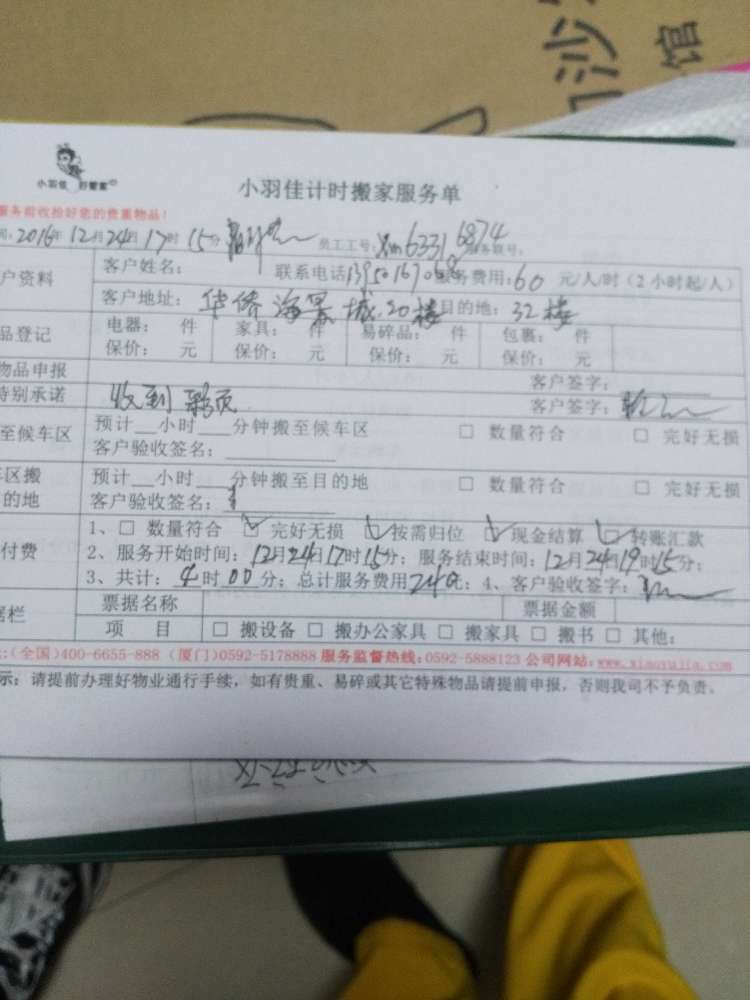 沙
馆
小羽佳 好管家
小羽佳计时搬家服务单
服务前收拾好您的贵重物品！
间：2016年12月24日17时15分 员工工号：xm6331 6874 服务联号：
户资料 客户姓名： 联系电话 服务费用：60 元/人/时（2小时起/人）
客户地址：华侨海景城20楼 目的地：32楼
品登记 电器： 件 家具： 件 易碎品： 件 包裹： 件
保价： 元 保价： 元 保价： 元 保价： 元
物品申报 客户签字：
特别承诺 收到彩页 客户签字：
至候车区 预计__小时___分钟搬至候车区 □ 数量符合 □ 完好无损
客户验收签名：
区搬 预计__小时___分钟搬至目的地 □ 数量符合 □ 完好无损
的地 客户验收签名：
付费 1、□ 数量符合 ☑ 完好无损 ☑ 按需归位 ☑ 现金结算 □ 转账汇款
2、服务开始时间：12月24日17时15分；服务结束时间：12月24日19时15分；
3、共计：4时00分；总计服务费用240元；4、客户验收签字：
据栏 票据名称 票据金额
项 目 □ 搬设备 □ 搬办公家具 □ 搬家具 □ 搬书 □ 其他：
：（全国）400-6655-888（厦门）0592-5178888 服务监督热线：0592-5888123 公司网站：www.xiaoyujia.com
示：请提前办理好物业通行手续，如有贵重、易碎或其它特殊物品请提前申报，否则我司不予负责。